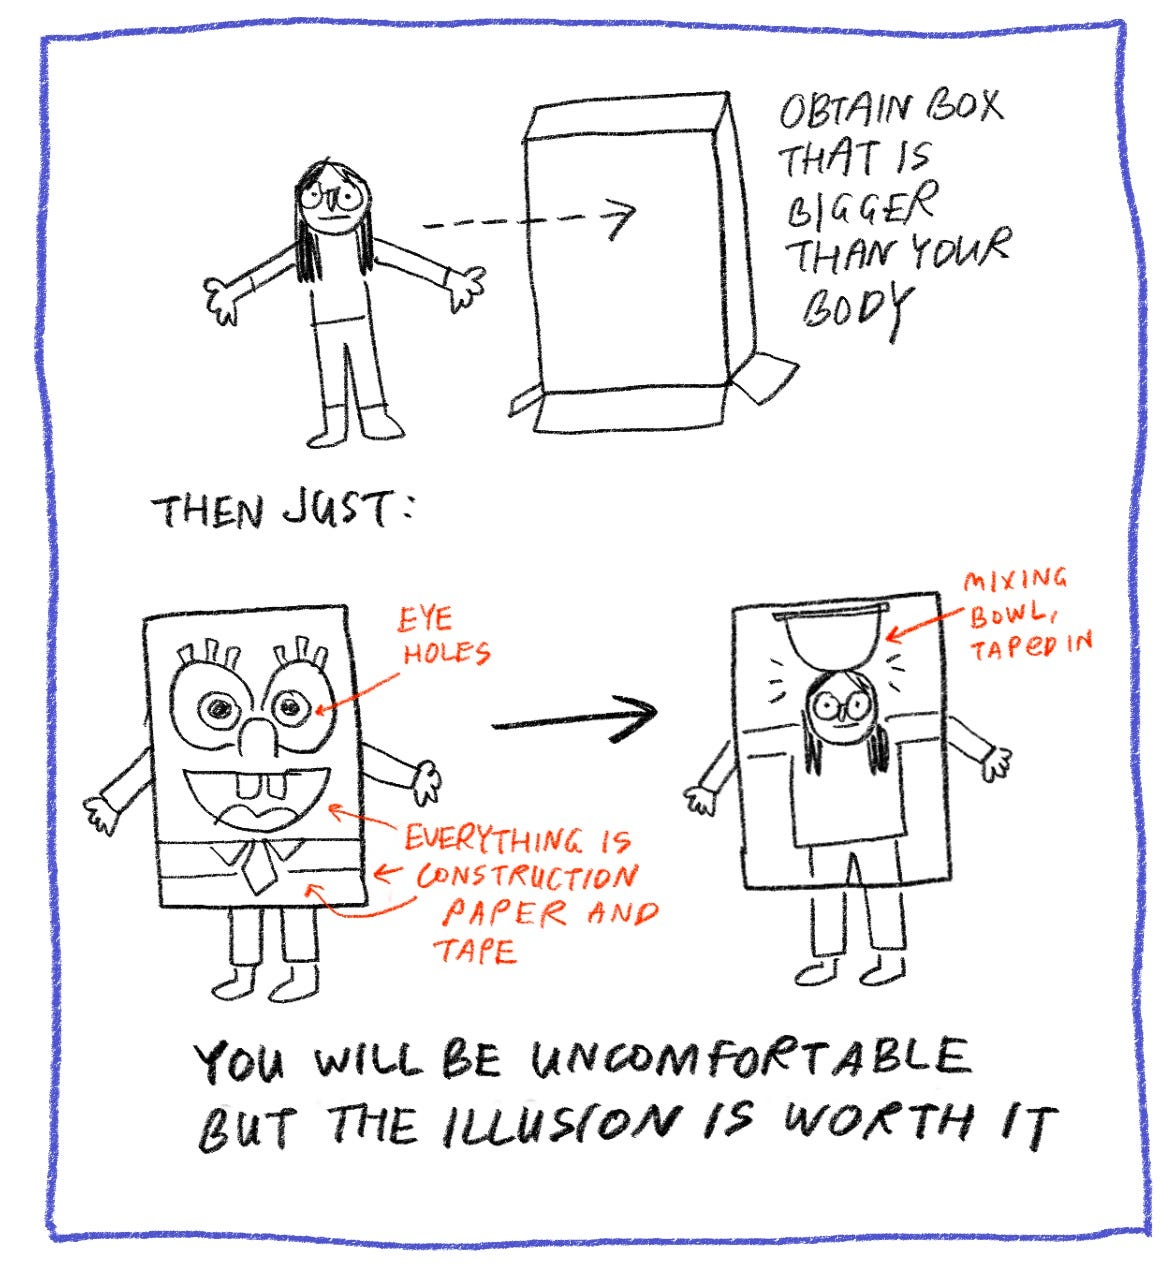 OBTAIN BOX
THAT IS
BIGGER
THAN YOUR
BODY
THEN JUST:
EYE
HOLES
EVERYTHING IS
CONSTRUCTION
PAPER AND
TAPE
MIXING
BOWL,
TAPED IN
YOU WILL BE UNCOMFORTABLE
BUT THE ILLUSION IS WORTH IT